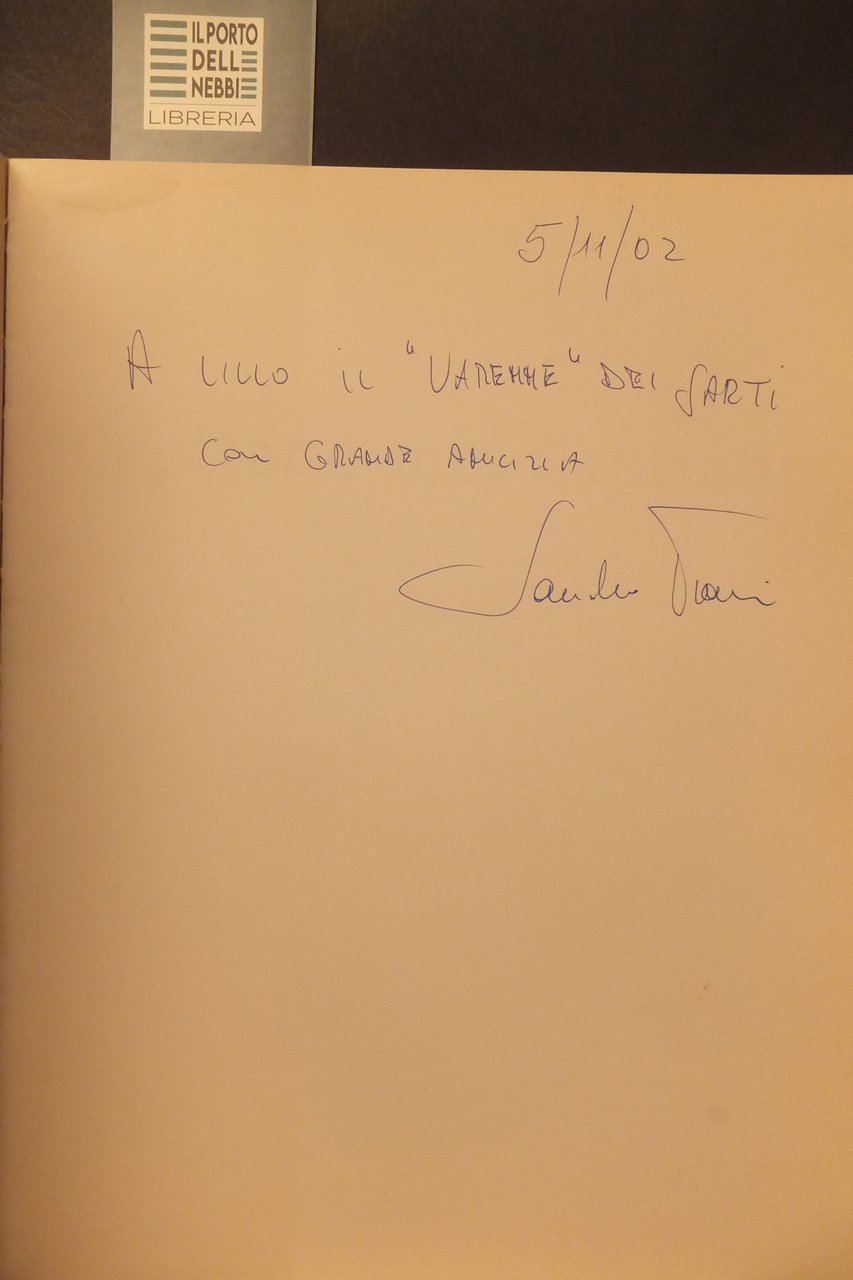 IL PORTO
DELL
NEBBI
LIBRERIA
5/11/02
A LILLO IL "VARENNE" DEI SARTI
CON GRANDE AMICIZIA
Sandro